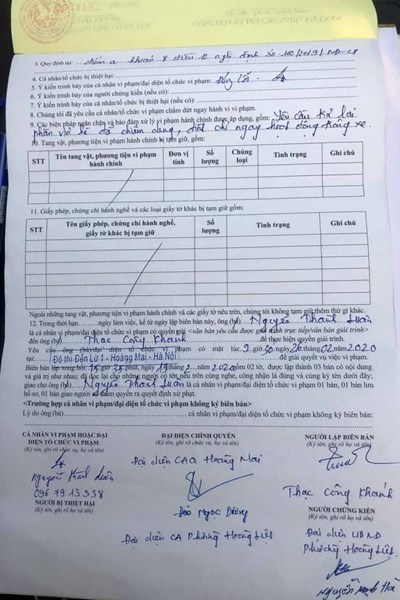 3. Quy định tại: điểm a khoản 8 điều 12 nghị định số 100/2019/NĐ-CP
4. Cá nhân/tổ chức bị thiệt hại:
5. Ý kiến trình bày của cá nhân vi phạm/đại diện tổ chức vi phạm:
6. Ý kiến trình bày của người chứng kiến (nếu có):
7. Ý kiến trình bày của cá nhân/tổ chức bị thiệt hại (nếu có):
8. Chúng tôi đã yêu cầu cá nhân/tổ chức vi phạm chấm dứt ngay hành vi vi phạm.
9. Các biện pháp ngăn chặn và bảo đảm xử lý vi phạm hành chính được áp dụng, gồm: Yêu cầu trả lại
phần vỉa hè đã chiếm dụng, đình chỉ ngay hoạt động trông xe.
10. Tang vật, phương tiện vi phạm hành chính bị tạm giữ:
STT Tên tang vật, phương tiện vi phạm hành chính Đơn vị tính Số lượng Chủng loại Tình trạng Ghi chú
11. Giấy phép, chứng chỉ hành nghề và các loại giấy tờ khác bị tạm giữ gồm:
STT Tên giấy phép, chứng chỉ hành nghề, giấy tờ khác bị tạm giữ Số lượng Tình trạng Ghi chú
Ngoài những tang vật, phương tiện vi phạm hành chính và các giấy tờ nêu trên, chúng tôi không tạm giữ thêm thứ gì khác.
12. Trong thời hạn ........ngày làm việc, kể từ ngày lập biên bản này, ông (bà) Nguyễn Thành Luân
là cá nhân vi phạm/đại diện tổ chức vi phạm có quyền gửi <văn bản yêu cầu được giải trình trực tiếp/văn bản giải trình>
đến ông (bà) Thạc Công Khanh để thực hiện quyền giải trình.
Yêu cầu ông (bà)/đại diện tổ chức vi phạm có mặt lúc 9 giờ 00 ngày 26 tháng 02 năm 2020
tại: Đô thị Đền Lừ 1 - Hoàng Mai - Hà Nội để giải quyết vụ việc vi phạm.
Biên bản lập xong hồi 15 giờ 25 phút, ngày 19 tháng 2 năm 2020 gồm 02 tờ, được lập thành 03 bản có nội dung
và giá trị như nhau; đã đọc lại cho những người có tên nêu trên cùng nghe, công nhận là đúng và cùng ký tên dưới đây;
giao cho ông (bà) Nguyễn Thành Luân là cá nhân vi phạm/đại diện tổ chức vi phạm 01 bản, 01 bản lưu
hồ sơ, 01 bản giao người có thẩm quyền ra quyết định xử phạt.
<Trường hợp cá nhân vi phạm/đại diện tổ chức vi phạm không ký biên bản>
Lý do ông (bà) cá nhân vi phạm/đại diện tổ chức vi phạm không ký biên bản:
CÁ NHÂN VI PHẠM HOẶC ĐẠI DIỆN TỔ CHỨC VI PHẠM
(Ký tên, ghi rõ chức vụ, họ và tên)
Nguyễn Thành Luân
096 19 13 338
NGƯỜI BỊ THIỆT HẠI
(Ký tên, ghi rõ họ và tên)
ĐẠI DIỆN CHÍNH QUYỀN
(Ký tên, ghi rõ chức vụ, họ và tên)
Đại diện CAQ Hoàng Mai
Đào Ngọc Dương
Đại diện CA Phường Hoàng Liệt
NGƯỜI LẬP BIÊN BẢN
(Ký tên, ghi rõ chức vụ, họ và tên)
Thạc Công Khanh
NGƯỜI CHỨNG KIẾN
(Ký tên, ghi rõ họ và tên)
Đại diện UBND
Phường Hoàng Liệt
Nguyễn Hà